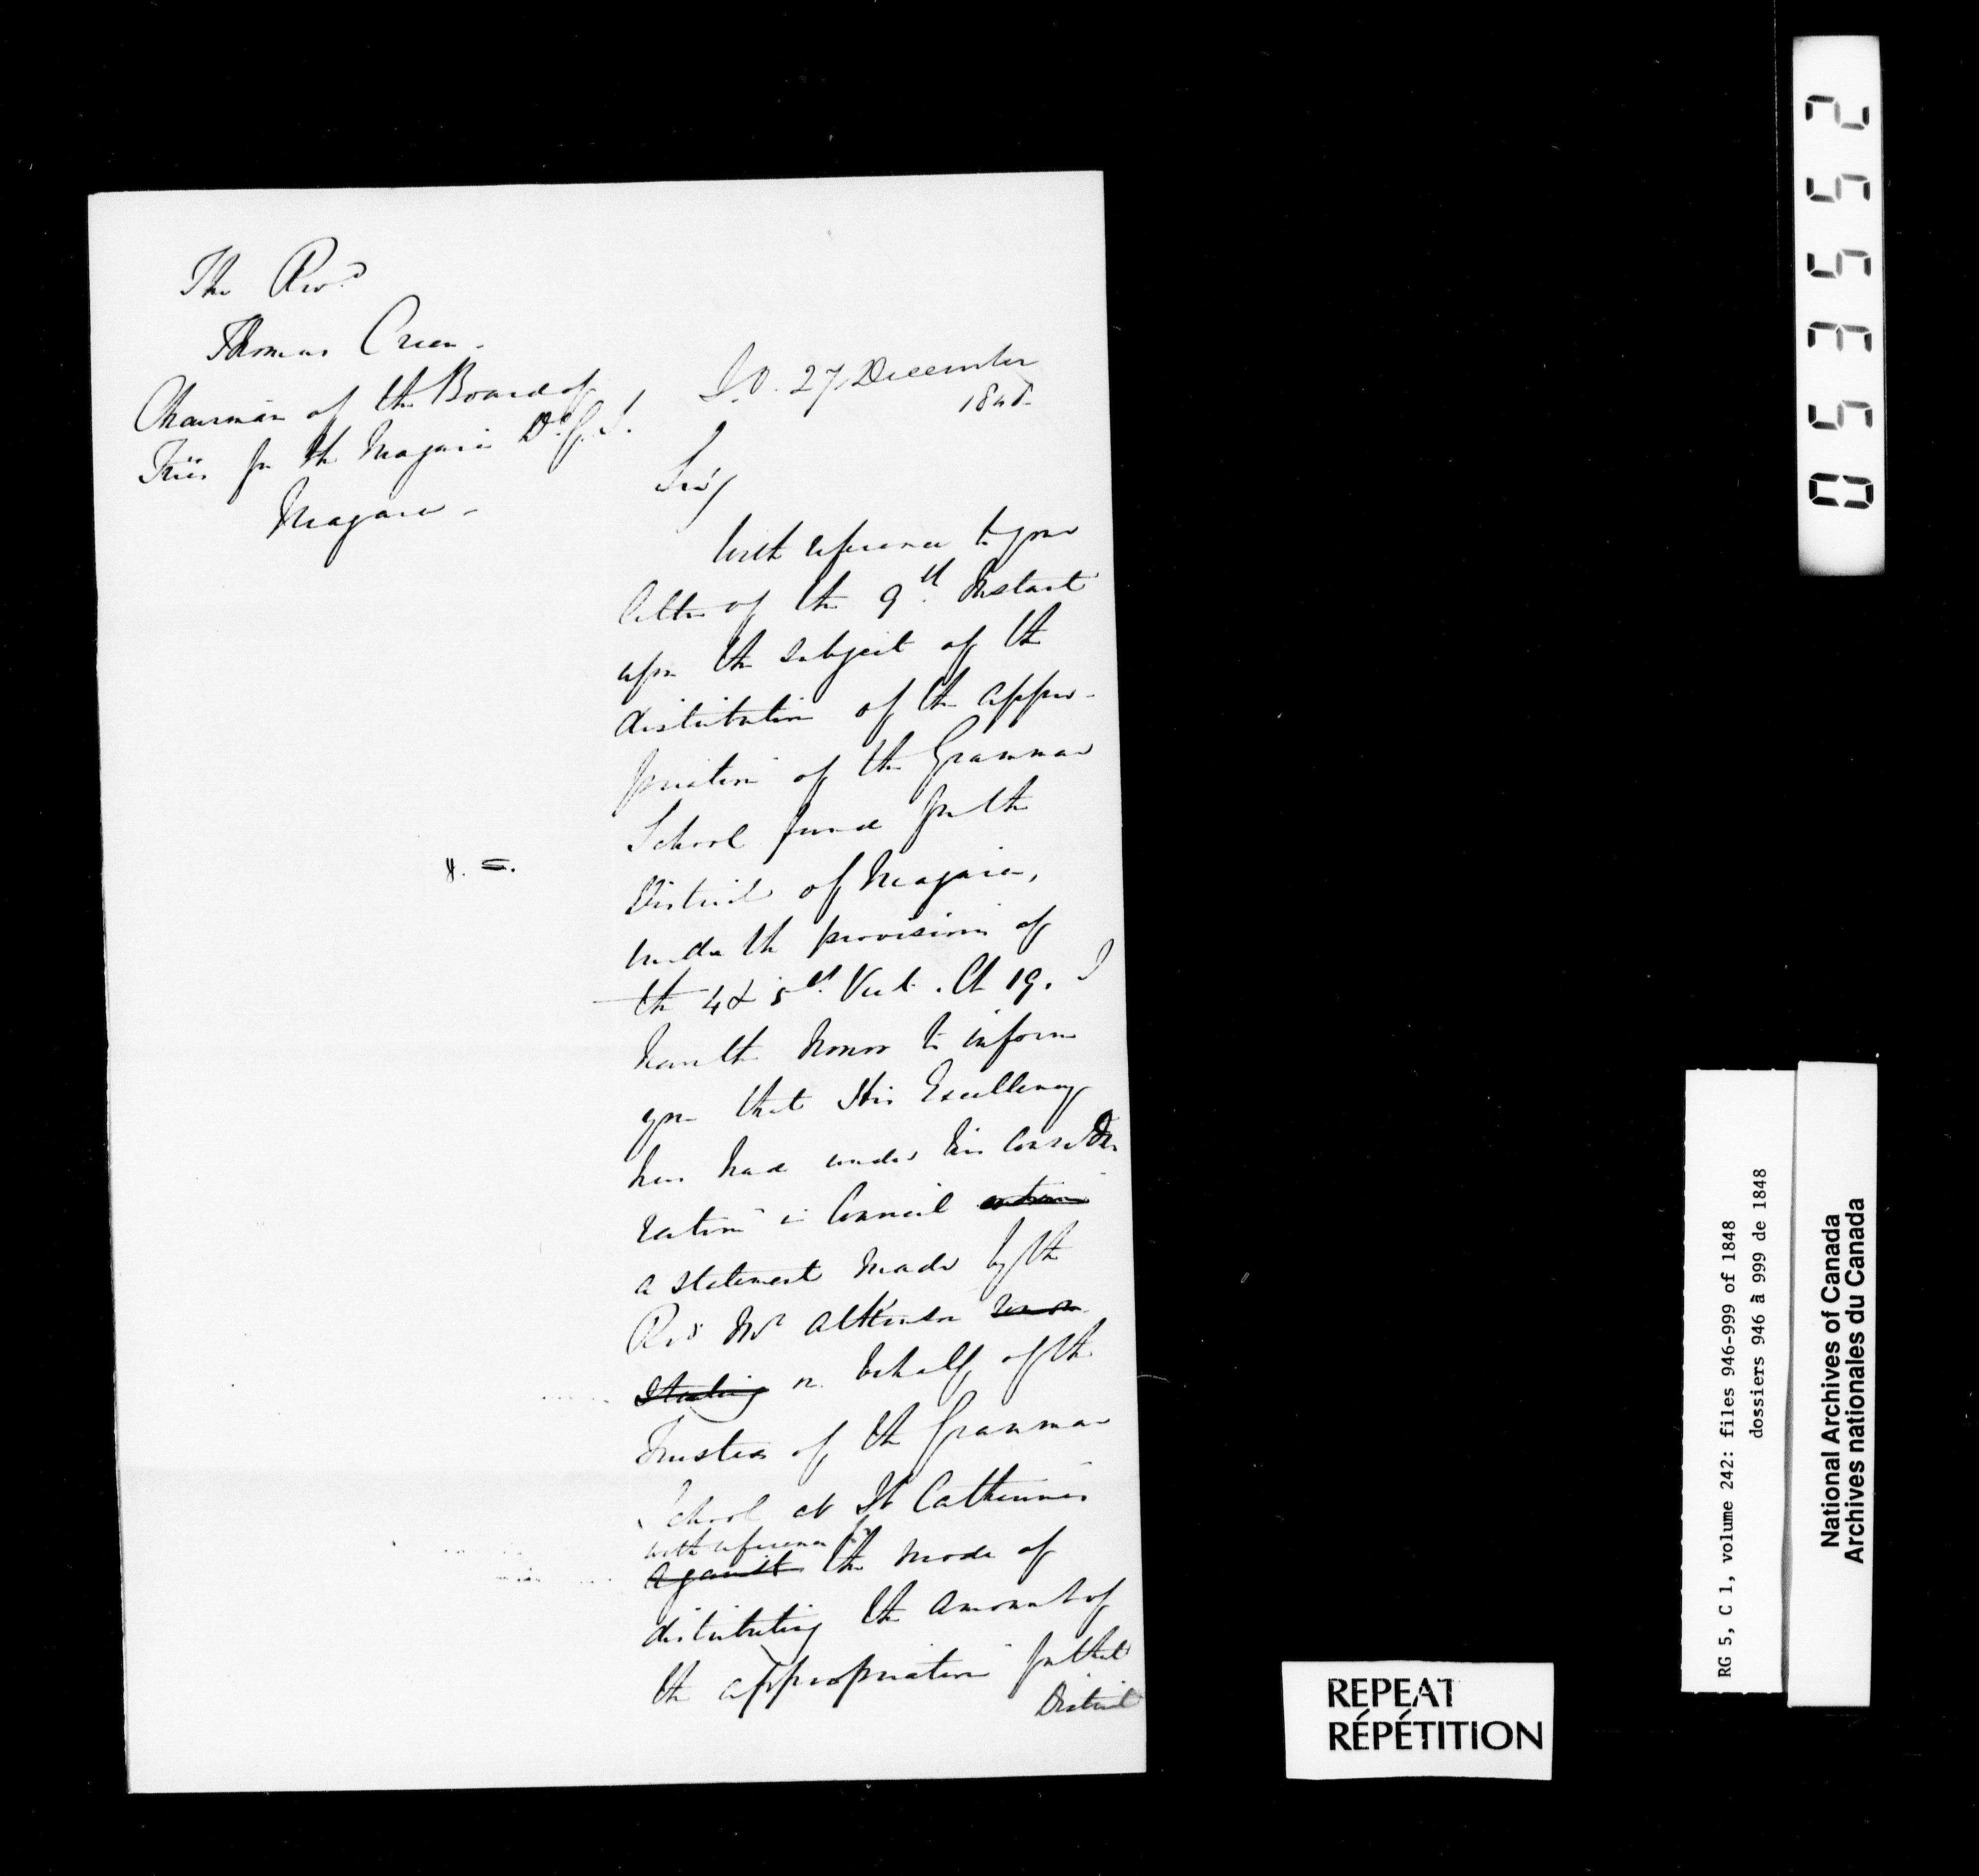 The Revd
Thomas Creen -
Chairman of the Board of
Trees for the Niagara Dt G. S.
Niagara -
S.O. 27 December
1848
Sir,
With reference to your
letter of the 9th Instant
upon the subject of the
distribution of the appro-
priation of the Grammar
School fund for the
District of Niagara,
under the provisions of
the 4 & 5th Vict. Ch 19. I
have the honor to inform
you that His Excellency
has had under his conside
ration in Council
a statement made by the
Revd Mr Atkinson
stating on behalf of the
Trustees of the Grammar
School at St Catherines
with reference to
against the mode of
distributing the amount of
the appropriation for that
District
053552
RG 5, C 1, volume 242: files 946-999 of 1848
dossiers 946 à 999 de 1848
National Archives of Canada
Archives nationales du Canada
REPEAT
RÉPÉTITION